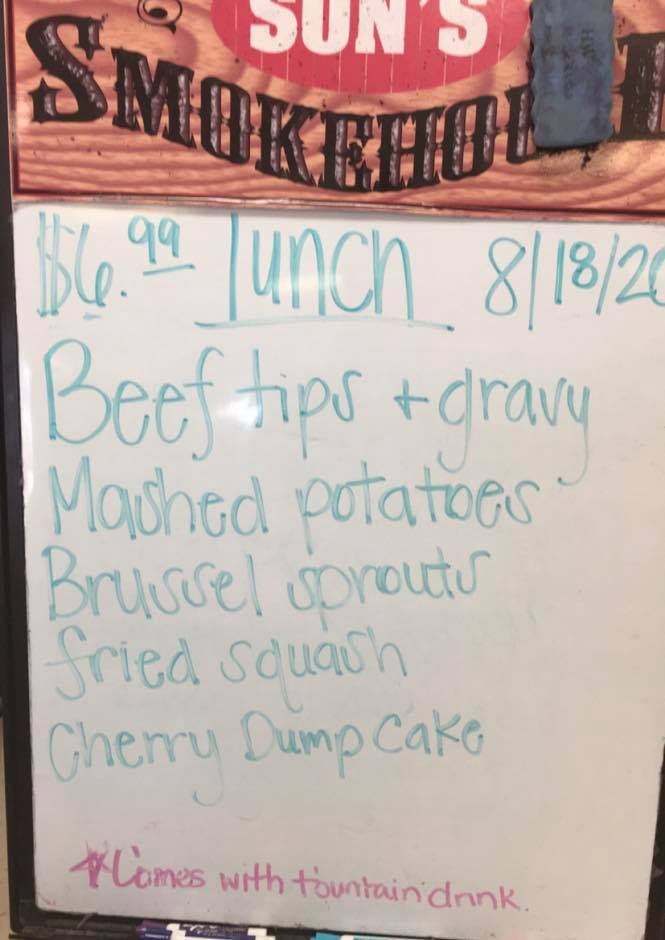 SON'S
SMOKEHOU
$6.99 lunch 8/18/20
Beef tips + gravy
Mashed potatoes
Brussel sprouts
fried squash
Cherry Dump Cake
*Comes with fountain drink.